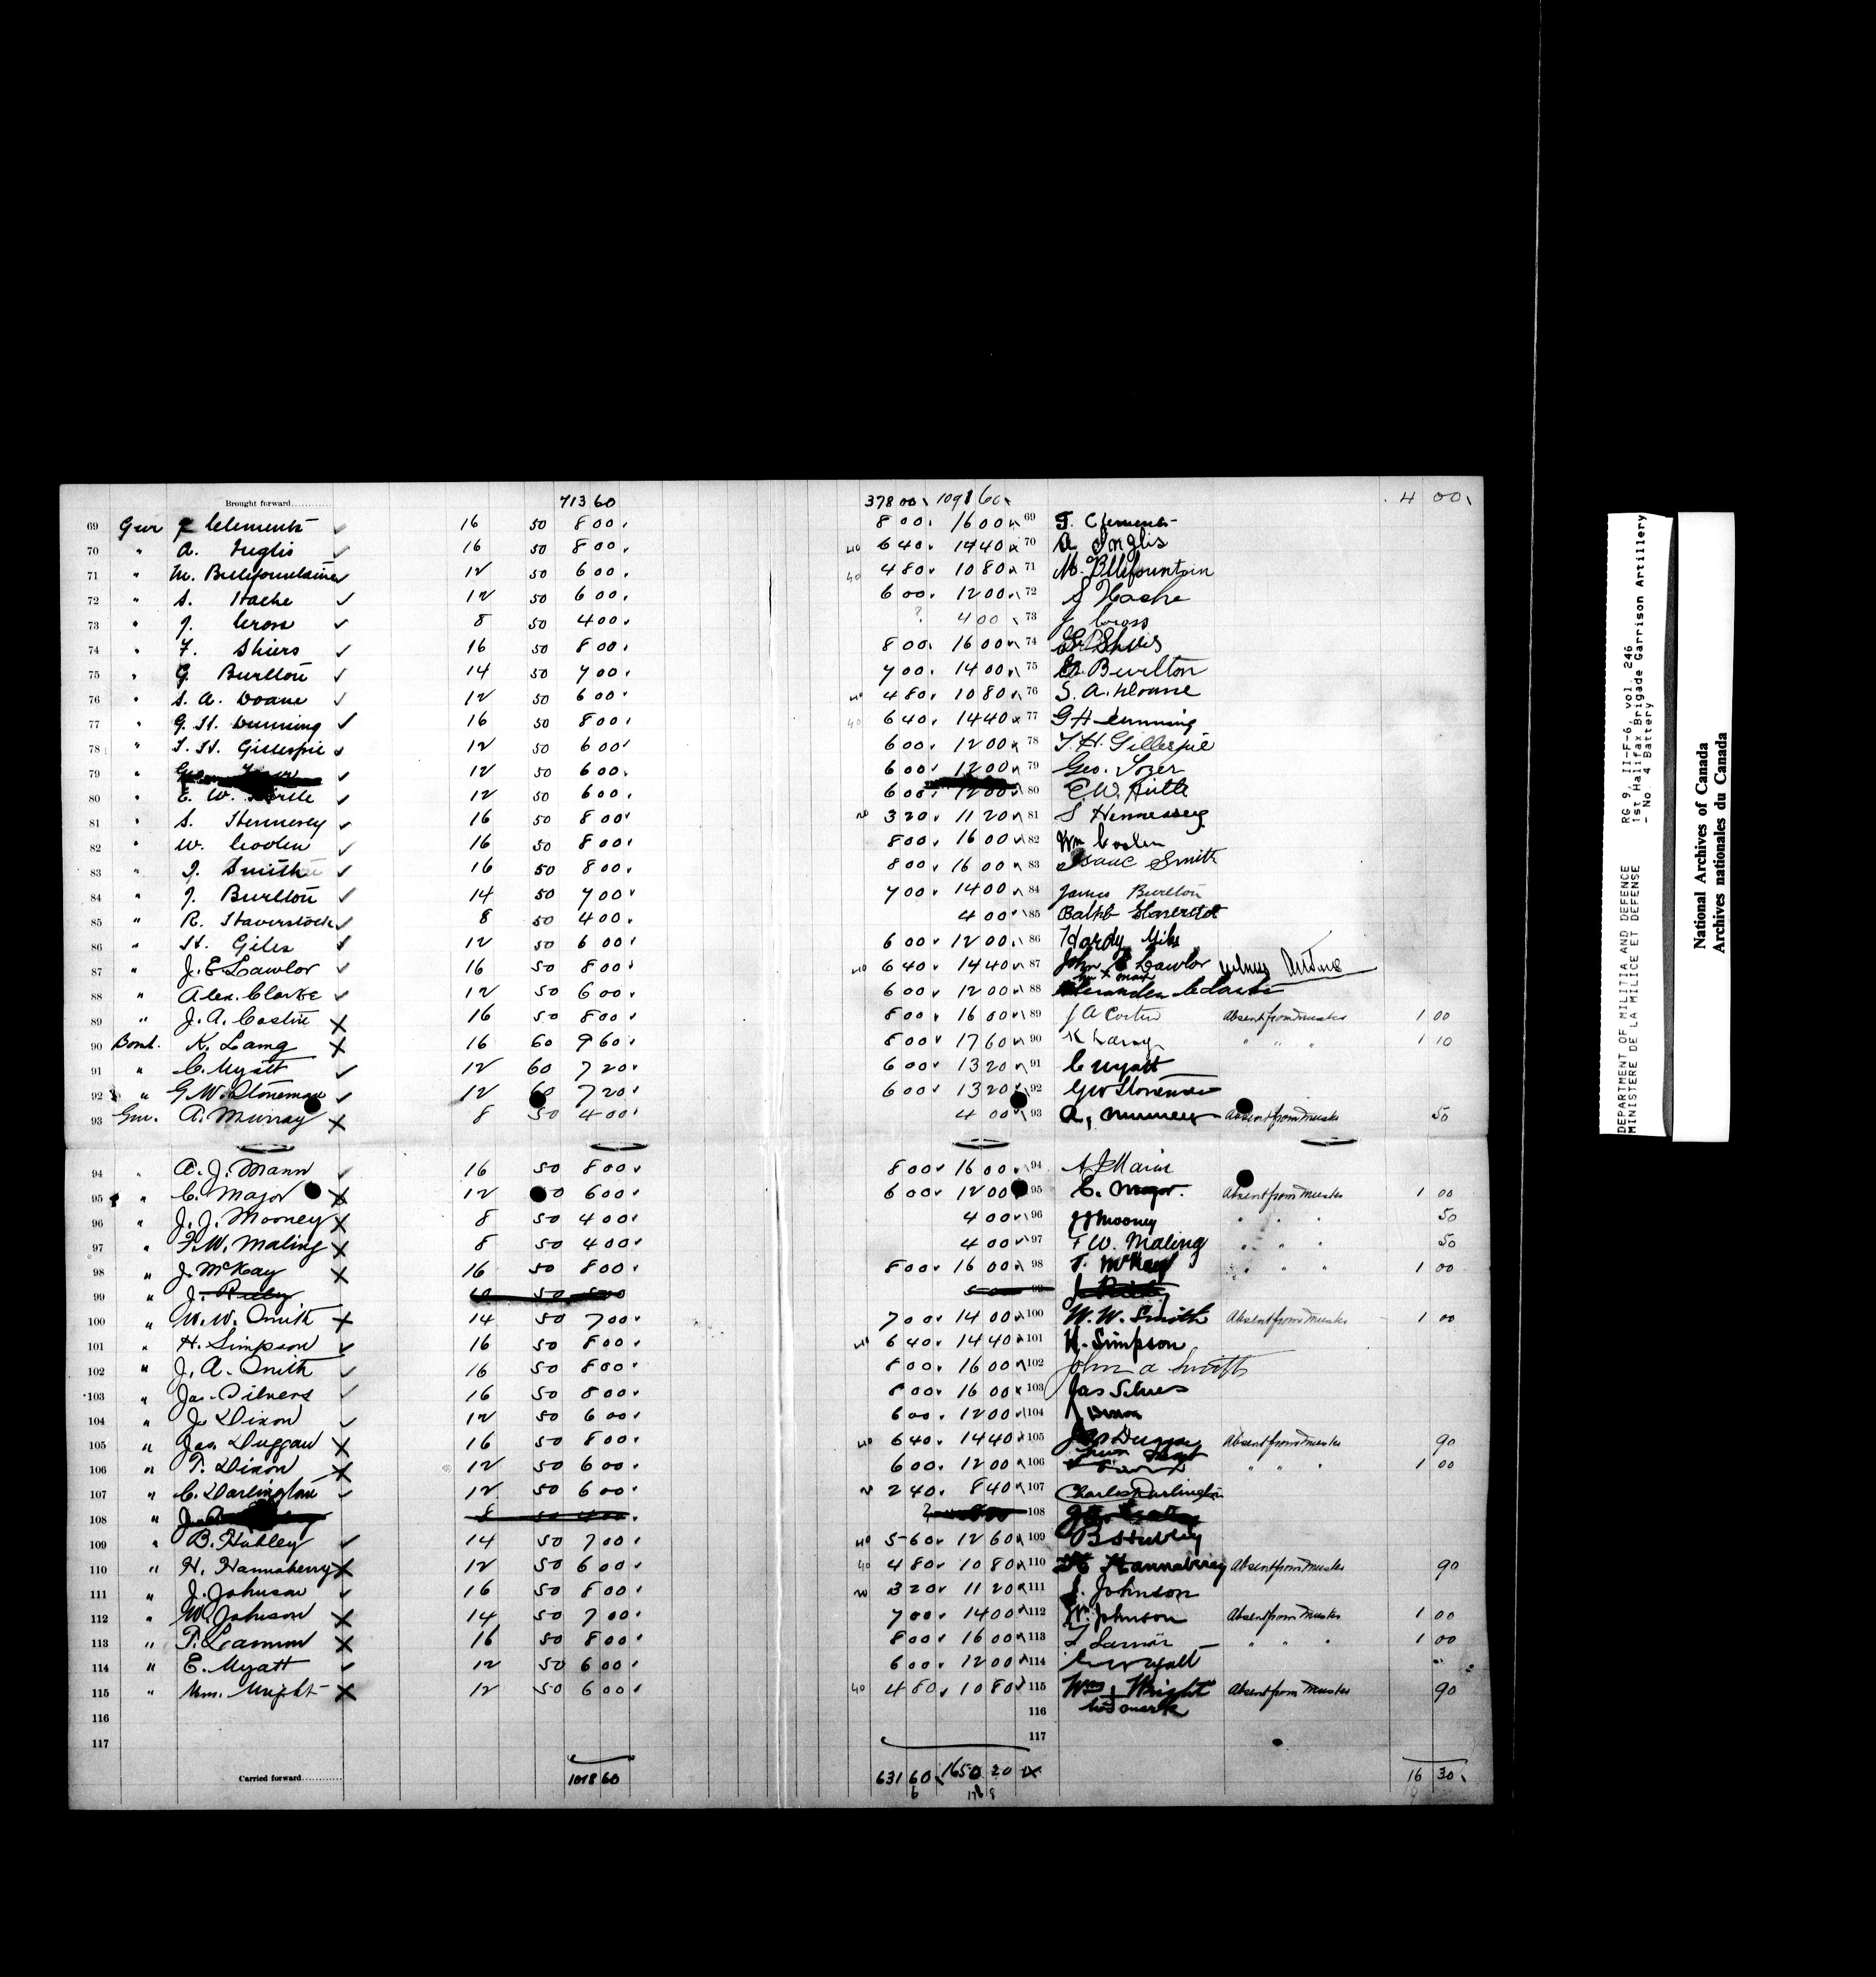 Brought forward.......... 713 60 378 00 1091 60 4 00
69 Gnr J Clements 16 50 8 00 8 00 16 00 69 J. Clements
70 " A. Inglis 16 50 8 00 40 6 40 14 40 70 A Inglis
71 " M. Bellefountaine 12 50 6 00 40 4 80 10 80 71 M. Bellefountain
72 " S. Hache 12 50 6 00 6 00 12 00 72 S Hache
73 " J. Cross 8 50 4 00 ? 4 00 73 J Cross
74 " F. Shiers 16 50 8 00 8 00 16 00 74
75 " G. Burlton 14 50 7 00 7 00 14 00 75 G. Burlton
76 " S. A. Doane 12 50 6 00 40 4 80 10 80 76 S. A. Doane
77 " G. H. Dunning 16 50 8 00 40 6 40 14 40 77 G H Dunning
78 " T. H. Gillespie 12 50 6 00 6 00 12 00 78 T. H. Gillespie
79 " 12 50 6 00 6 00 12 00 79 Geo. Tozer
80 " E. W. Hirtle 12 50 6 00 6 00 12 00 80 E. W. Hirtle
81 " S. Hennesey 16 50 8 00 20 3 20 11 20 81 S Hennessey
82 " W. Coolen 16 50 8 00 8 00 16 00 82 Wm Coolen
83 " I. Smith 16 50 8 00 8 00 16 00 83 Isaac Smith
84 " J. Burlton 14 50 7 00 7 00 14 00 84 James Burlton
85 " R. Haverstock 8 50 4 00 4 00 85
86 " H. Giles 12 50 6 00 6 00 12 00 86 Hardy Giles
87 " J. E. Lawlor 16 50 8 00 40 6 40 14 40 87 John E Lawlor
his x mark
88 " Alex. Clarke 12 50 6 00 6 00 12 00 88 Alexander Clarke
89 " J. A. Costin 16 50 8 00 8 00 16 00 89 J A Costin Absent from Muster 1 00
90 Bomb. K. Laing 16 60 9 60 8 00 17 60 90 K Laing " " " 1 10
91 " C. Myatt 12 60 7 20 6 00 13 20 91 C Myatt
92 " G. W. Stoneman 12 60 7 20 6 00 13 20 92 G W Stoneman
93 Gnr. A. Murray 8 50 4 00 4 00 93 A, Murray Absent from Muster 50
94 " A. J. Mann 16 50 8 00 8 00 16 00 94 A J Mann
95 " C. Major 12 50 6 00 6 00 12 00 95 C. Major. Absent from Muster 1 00
96 " J. J. Mooney 8 50 4 00 4 00 96 J J Mooney " " " 50
97 " F. W. Maling 8 50 4 00 4 00 97 F W. Maling " " " 50
98 " J. McKay 16 50 8 00 8 00 16 00 98 J. McKay " " " 1 00
99 " J. Ruby 50 99
100 " W. W. Smith 14 50 7 00 7 00 14 00 100 W. W. Smith Absent from Muster 1 00
101 " H. Simpson 16 50 8 00 40 6 40 14 40 101 H. Simpson
102 " J. A. Smith 16 50 8 00 8 00 16 00 102 John A Smith
103 " Jas. Silvers 16 50 8 00 8 00 16 00 103 Jas Silvers
104 " J. Dixon 12 50 6 00 6 00 12 00 104 J Dixon
105 " Jas. Duggan 16 50 8 00 40 6 40 14 40 105 Jas Duggan Absent from Muster 90
106 " T. Dixon 12 50 6 00 6 00 12 00 106 " " " 1 00
107 " C. Darlington 12 50 6 00 20 2 40 8 40 107 Charles Darlington
108 " 8 50 4 00 ? 108
109 " B. Hubley 14 50 7 00 40 5 60 12 60 109 B Hubley
110 " H. Hannaberry 12 50 6 00 40 4 80 10 80 110 H Hannaberry Absent from Muster 90
111 " J. Johnson 16 50 8 00 20 3 20 11 20 111 J. Johnson
112 " W. Johnson 14 50 7 00 7 00 14 00 112 Wm Johnson Absent from Muster 1 00
113 " T. Lannin 16 50 8 00 8 00 16 00 113 " " " 1 00
114 " E. Myatt 12 50 6 00 6 00 12 00 114 E Myatt
115 " Wm. Wright 12 50 6 00 40 4 80 10 80 115 Wm Wright Absent from Muster 90
116 116 his mark
117 117
Carried forward............ 1018 60 631 60 1650 20 16 30
DEPARTMENT OF MILITIA AND DEFENCE RG 9, II-F-6, vol. 246
MINISTERE DE LA MILICE ET DEFENSE 1st Halifax Brigade Garrison Artillery
- No. 4 Battery
National Archives of Canada
Archives nationales du Canada